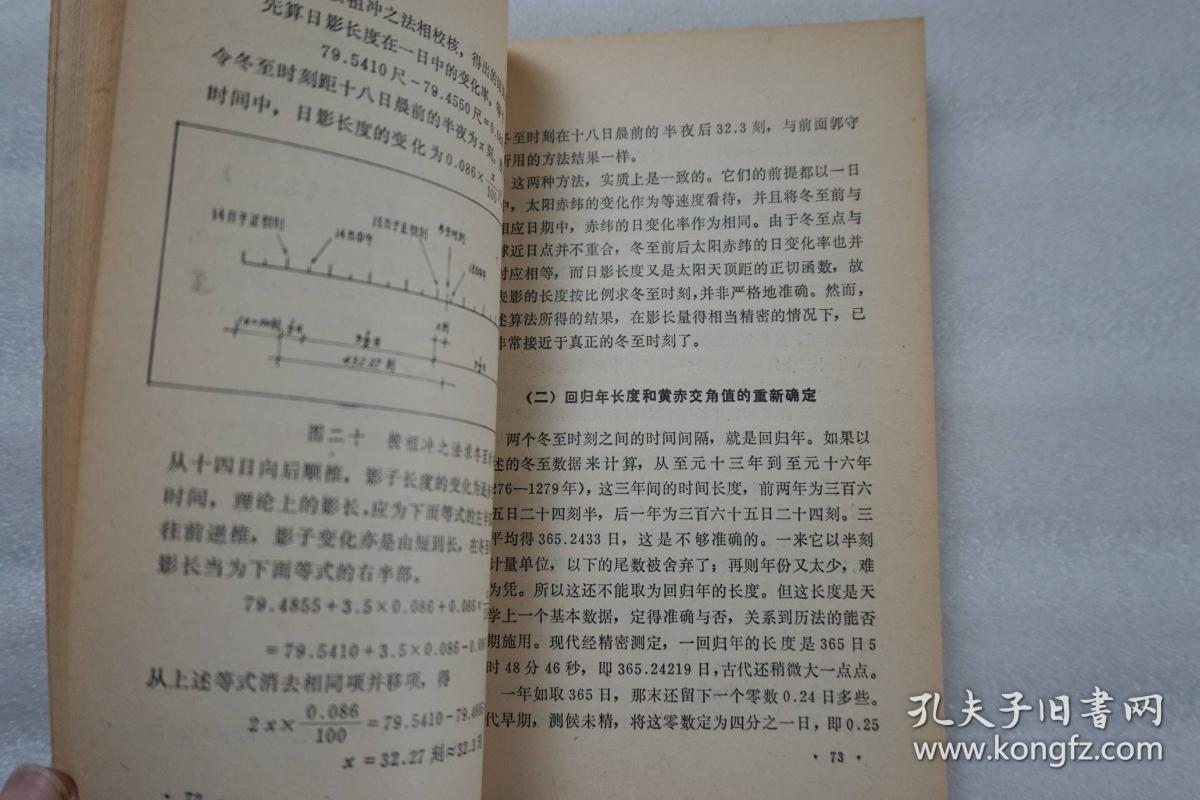 祖冲之法相校核，得出的结
先算日影长度在一日中的变化率，等
79.5410尺－79.4550尺=0.0
令冬至时刻距十八日晨前的半夜为x刻，
时间中，日影长度的变化为0.086×x/100
x刻
432.27刻
图二十 按祖冲之法求冬至
从十四日向后顺推，影子长度的变化为
时间，理论上的影长，应为下面等式的左
往前逆推，影子变化亦是由短到长，在冬至
影长当为下面等式的右半部。
79.4855+3.5×0.086+0.086×
=79.5410+3.5×0.086-0.0
从上述等式消去相同项并移项，得
2x×0.086/100=79.5410-79.4855
x=32.27刻≈32.3刻
· 72
冬至时刻在十八日晨前的半夜后32.3刻，与前面郭守
所用的方法结果一样。
这两种方法，实质上是一致的。它们的前提都以一日
中，太阳赤纬的变化作为等速度看待，并且将冬至前与
相应日期中，赤纬的日变化率作为相同。由于冬至点与
球近日点并不重合，冬至前后太阳赤纬的日变化率也并
对应相等，而日影长度又是太阳天顶距的正切函数，故
表影的长度按比例求冬至时刻，并非严格地准确。然而，
述算法所得的结果，在影长量得相当精密的情况下，已
非常接近于真正的冬至时刻了。
（二）回归年长度和黄赤交角值的重新确定
两个冬至时刻之间的时间间隔，就是回归年。如果以
述的冬至数据来计算，从至元十三年到至元十六年
276—1279年），这三年间的时间长度，前两年为三百六
五日二十四刻半，后一年为三百六十五日二十四刻。三
平均得365.2433日，这是不够准确的。一来它以半刻
计量单位，以下的尾数被舍弃了；再则年份又太少，难
为凭。所以这还不能取为回归年的长度。但这长度是天
学上一个基本数据，定得准确与否，关系到历法的能否
期施用。现代经精密测定，一回归年的长度是365日5
时48分46秒，即365.24219日，古代还稍微大一点点。
一年如取365日，那末还留下一个零数0.24日多些。
代早期，测候未精，将这零数定为四分之一日，即0.25
· 73 ·
孔夫子旧书网
www.kongfz.com